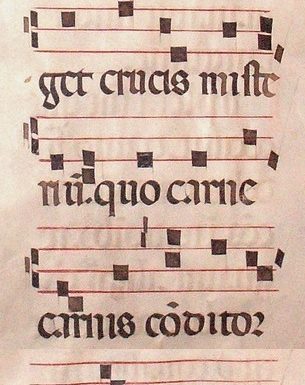 get crucis miste
riū. quo carne
carnis cōditor